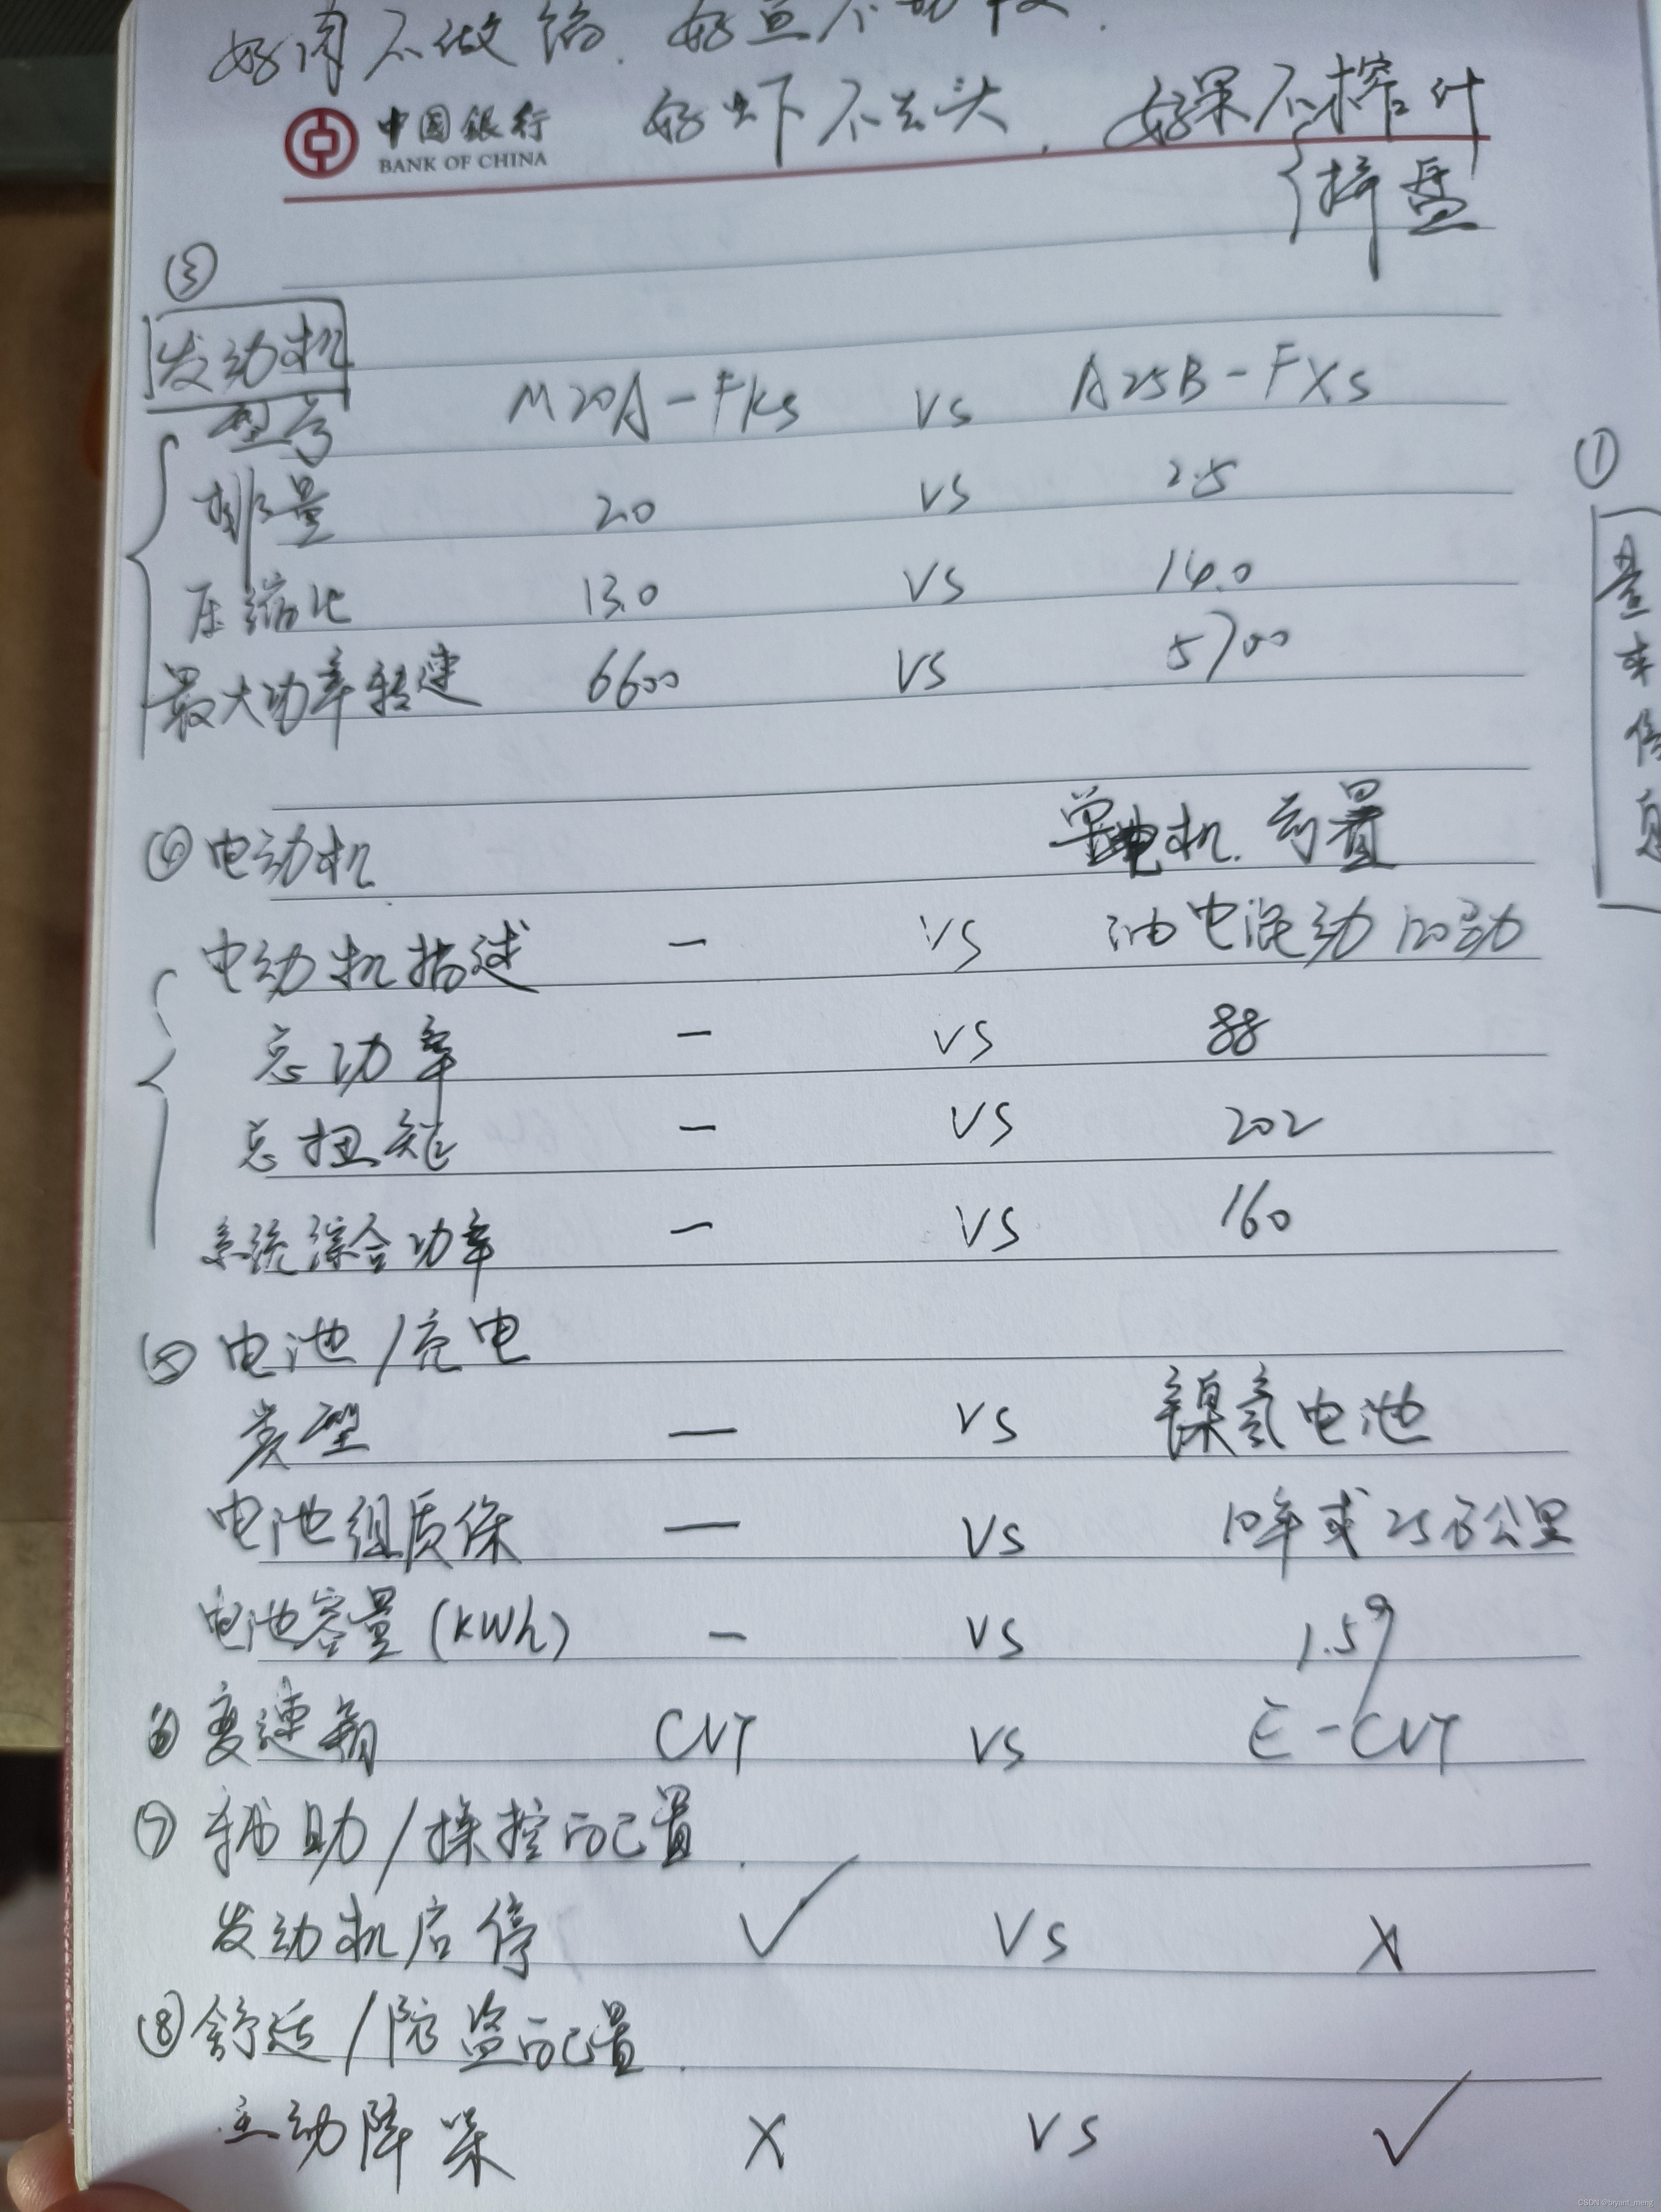 好肉不做馅. 好鱼不
中国銀行 好虾不去头, 好果不榨汁
BANK OF CHINA
拼盘
③
发动机
型号 M20A-FKS VS A25B-FXS
排量 2.0 VS 2.5
压缩比 13.0 VS 14.0
最大功率转速 6600 VS 5700
①
整车信息
④电动机 单电机. 前置
电动机描述 — VS 油电混动120马力
总功率 — VS 88
总扭矩 — VS 202
系统综合功率 — VS 160
⑤电池/充电
类型 — VS 镍氢电池
电池组质保 — VS 10年或25万公里
电池容量(kWh) — VS 1.59
⑥变速箱 CVT VS E-CVT
⑦辅助/操控配置.
发动机启停 ✓ VS X
⑧舒适/防盗配置.
主动降噪 X VS ✓
CSDN @bryant_meng